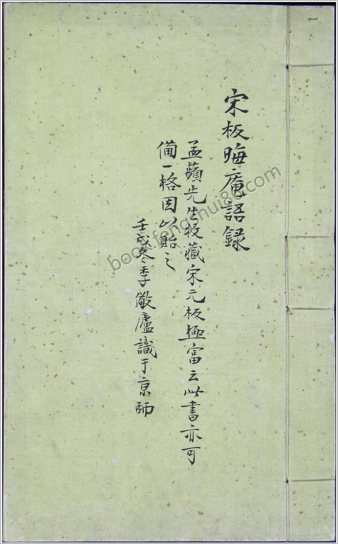 宋板晦庵語録
孟蘋先生收藏宋元板極富云此書亦可
備一格因以貽之
壬戌冬季嚴廬識于京師